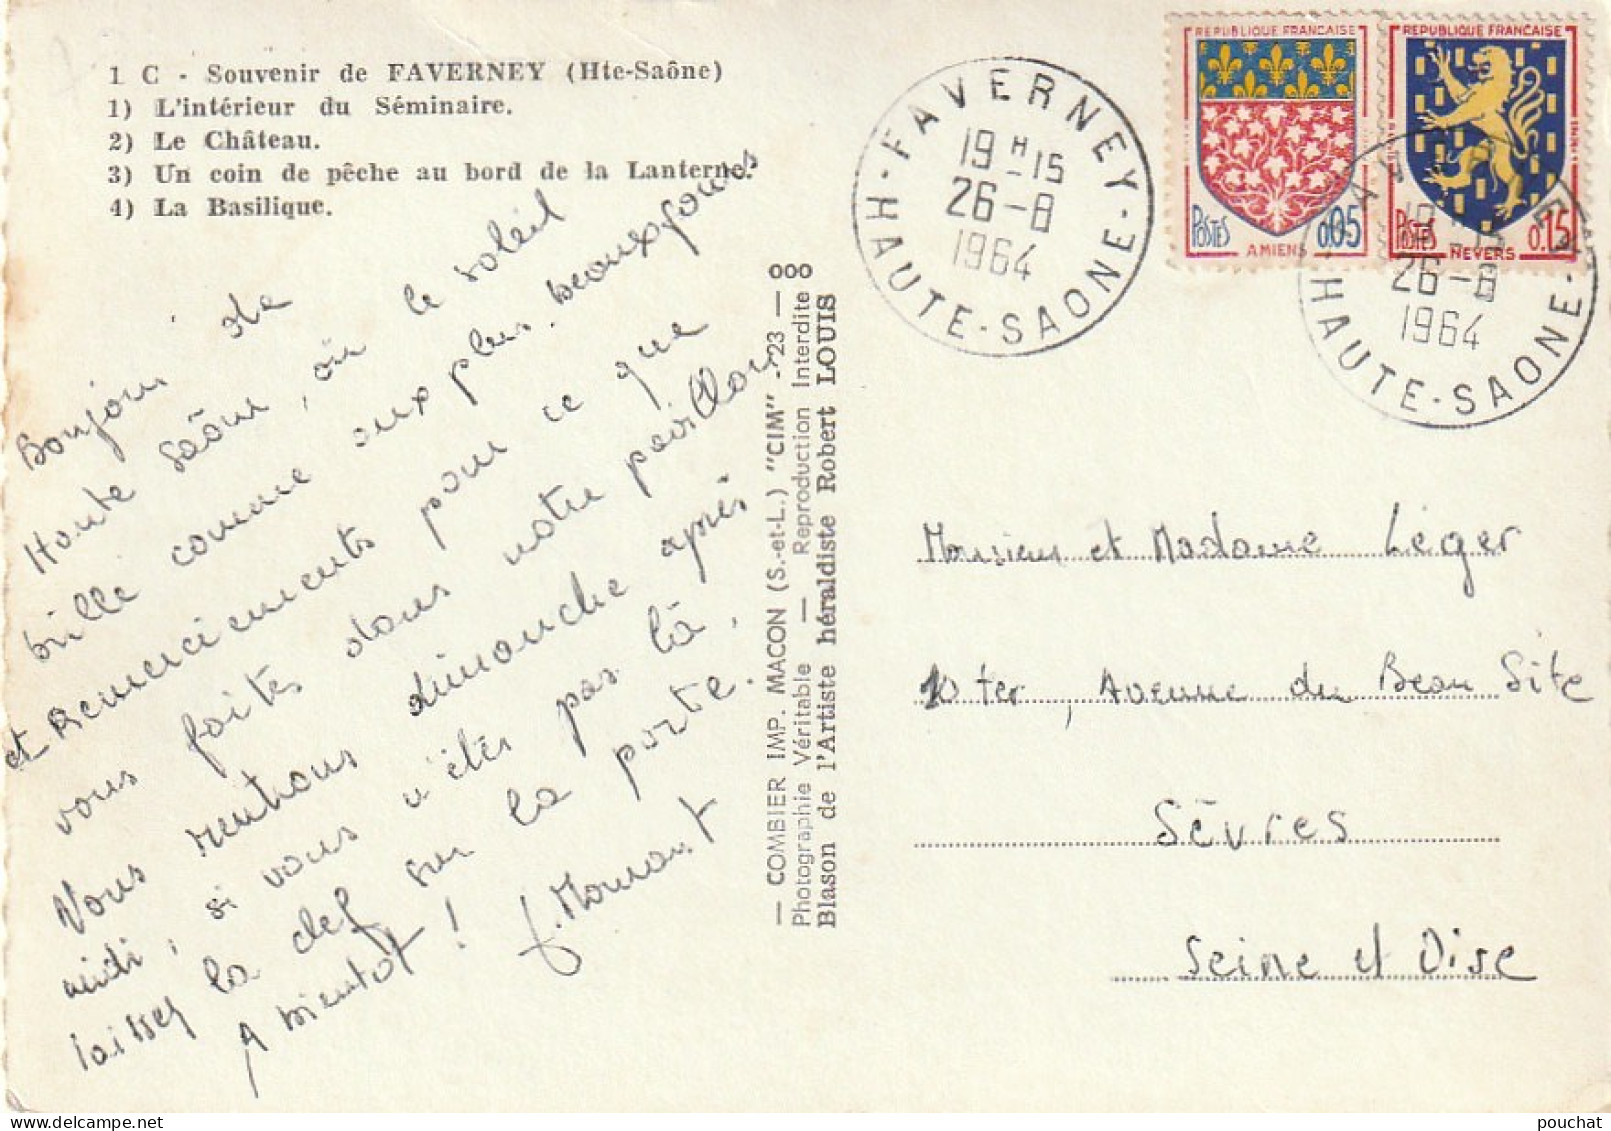 1 C - Souvenir de FAVERNEY (Hte-Saône)
1) L'intérieur du Séminaire.
2) Le Château.
3) Un coin de pêche au bord de la Lanterne.
4) La Basilique.
Bonjour de
Haute Saône, où le soleil
brille comme aux plus beaux jours
et Remerciements pour ce que
vous faites dans notre pavillon
Vous rentrons dimanche après
midi, si vous n'êtes pas là,
laissez la clef sur la porte.
A bientôt !
J. Moumant
— COMBIER IMP. MACON (S.-et-L.) "CIM" - 23 — 000
Photographie Véritable — Reproduction Interdite
Blason de l'Artiste héraldiste Robert LOUIS
FAVERNEY
19 H -15
26-8
1964
HAUTE-SAONE
REPUBLIQUE FRANCAISE
POSTES
0,05
AMIENS
REPUBLIQUE FRANCAISE
POSTES
0,15
NEVERS
26-8
1964
HAUTE-SAONE
Monsieur et Madame Léger
10 ter, Avenue du Beau Site
Sèvres
Seine et Oise
pouchat